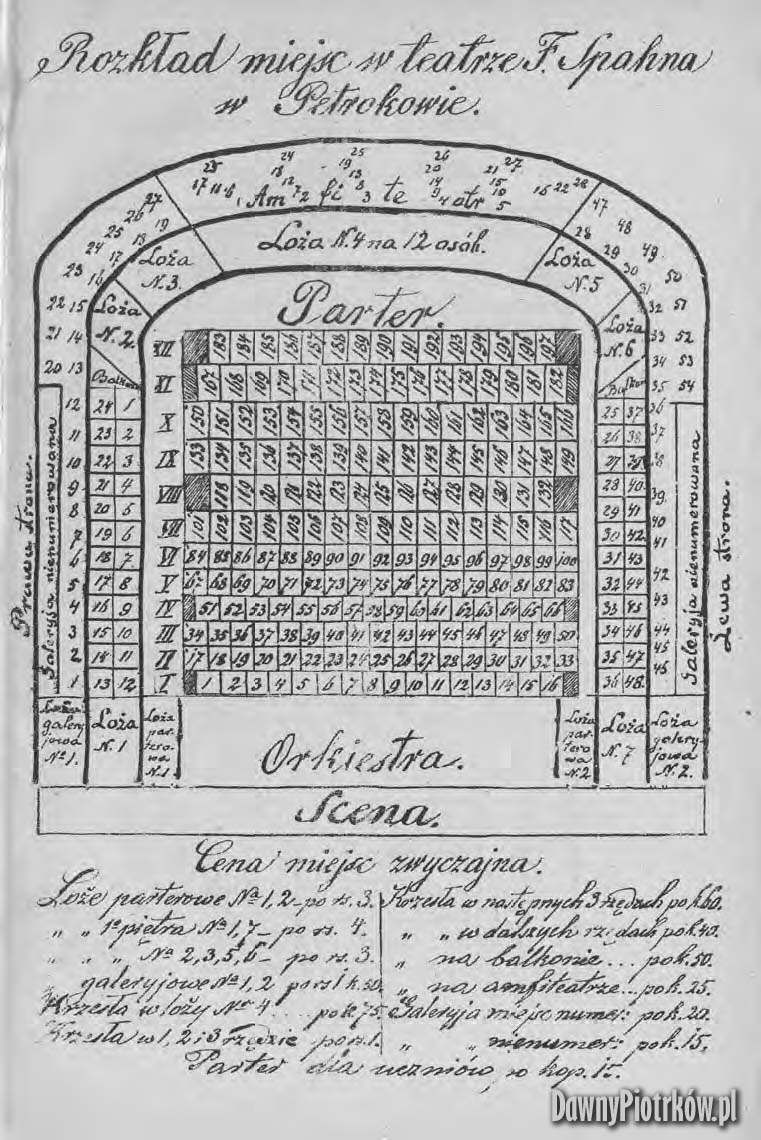 Rozkład miejsc w teatrze F. Spahna
w Petrokowie.
Amfiteatr
Loża N. 4 na 12 osób.
Loża N. 3.
Loża N. 5
Loża N. 2.
Loża N. 6
Parter.
Balkon
Balkon
XII 183 184 185 186 187 188 189 190 191 192 193 194 195 196 197
XI 167 168 169 170 171 172 173 174 175 176 177 178 179 180 181 182
X 150 151 152 153 154 155 156 157 158 159 160 161 162 163 164 165 166
IX 133 134 135 136 137 138 139 140 141 142 143 144 145 146 147 148 149
VIII 118 119 120 121 122 123 124 125 126 127 128 129 130 131 132
VII 101 102 103 104 105 106 107 108 109 110 111 112 113 114 115 116 117
VI 84 85 86 87 88 89 90 91 92 93 94 95 96 97 98 99 100
V 67 68 69 70 71 72 73 74 75 76 77 78 79 80 81 82 83
IV 51 52 53 54 55 56 57 58 59 60 61 62 63 64 65 66
III 34 35 36 37 38 39 40 41 42 43 44 45 46 47 48 49 50
II 17 18 19 20 21 22 23 24 25 26 27 28 29 30 31 32 33
I 1 2 3 4 5 6 7 8 9 10 11 12 13 14 15 16
24 1
23 2
22 3
21 4
20 5
19 6
18 7
17 8
16 9
15 10
14 11
13 12
25 37
26 38
27 39
28 40
29 41
30 42
31 43
32 44
33 45
34 46
35 47
36 48
Prawa strona.
Galeryja nienumerowana
Galeryja nienumerowana
Lewa strona.
Loża galeryjowa Nº 1.
Loża N. 1
Loża parterowa N. 1
Orkiestra.
Loża parterowa N. 2
Loża N. 7
Loża galeryjowa N. 2.
Scena.
Cena miejsc zwyczajna.
Loże parterowe Nº 1, 2 – po rs. 3.
„ „ 1º piętra Nº 1, 7 – po rs. 4.
„ „ „ Nº 2, 3, 5, 6 – po rs. 3.
„ galeryjowe Nº 1, 2 po rs 1 k. 50.
Krzesła w loży Nº 4 ... po k. 75.
Krzesła w 1, 2 i 3 rzędzie po rs. 1.
Krzesła w następnych 3 rzędach po k. 60.
„ „ w dalszych rzędach po k. 40.
„ na balkonie ... po k. 50.
„ na amfiteatrze ... po k. 25.
Galeryja miejsc numer: po k. 20.
„ „ nienumer: po k. 15.
Parter dla uczniów po kop. 15.
DawnyPiotrków.pl